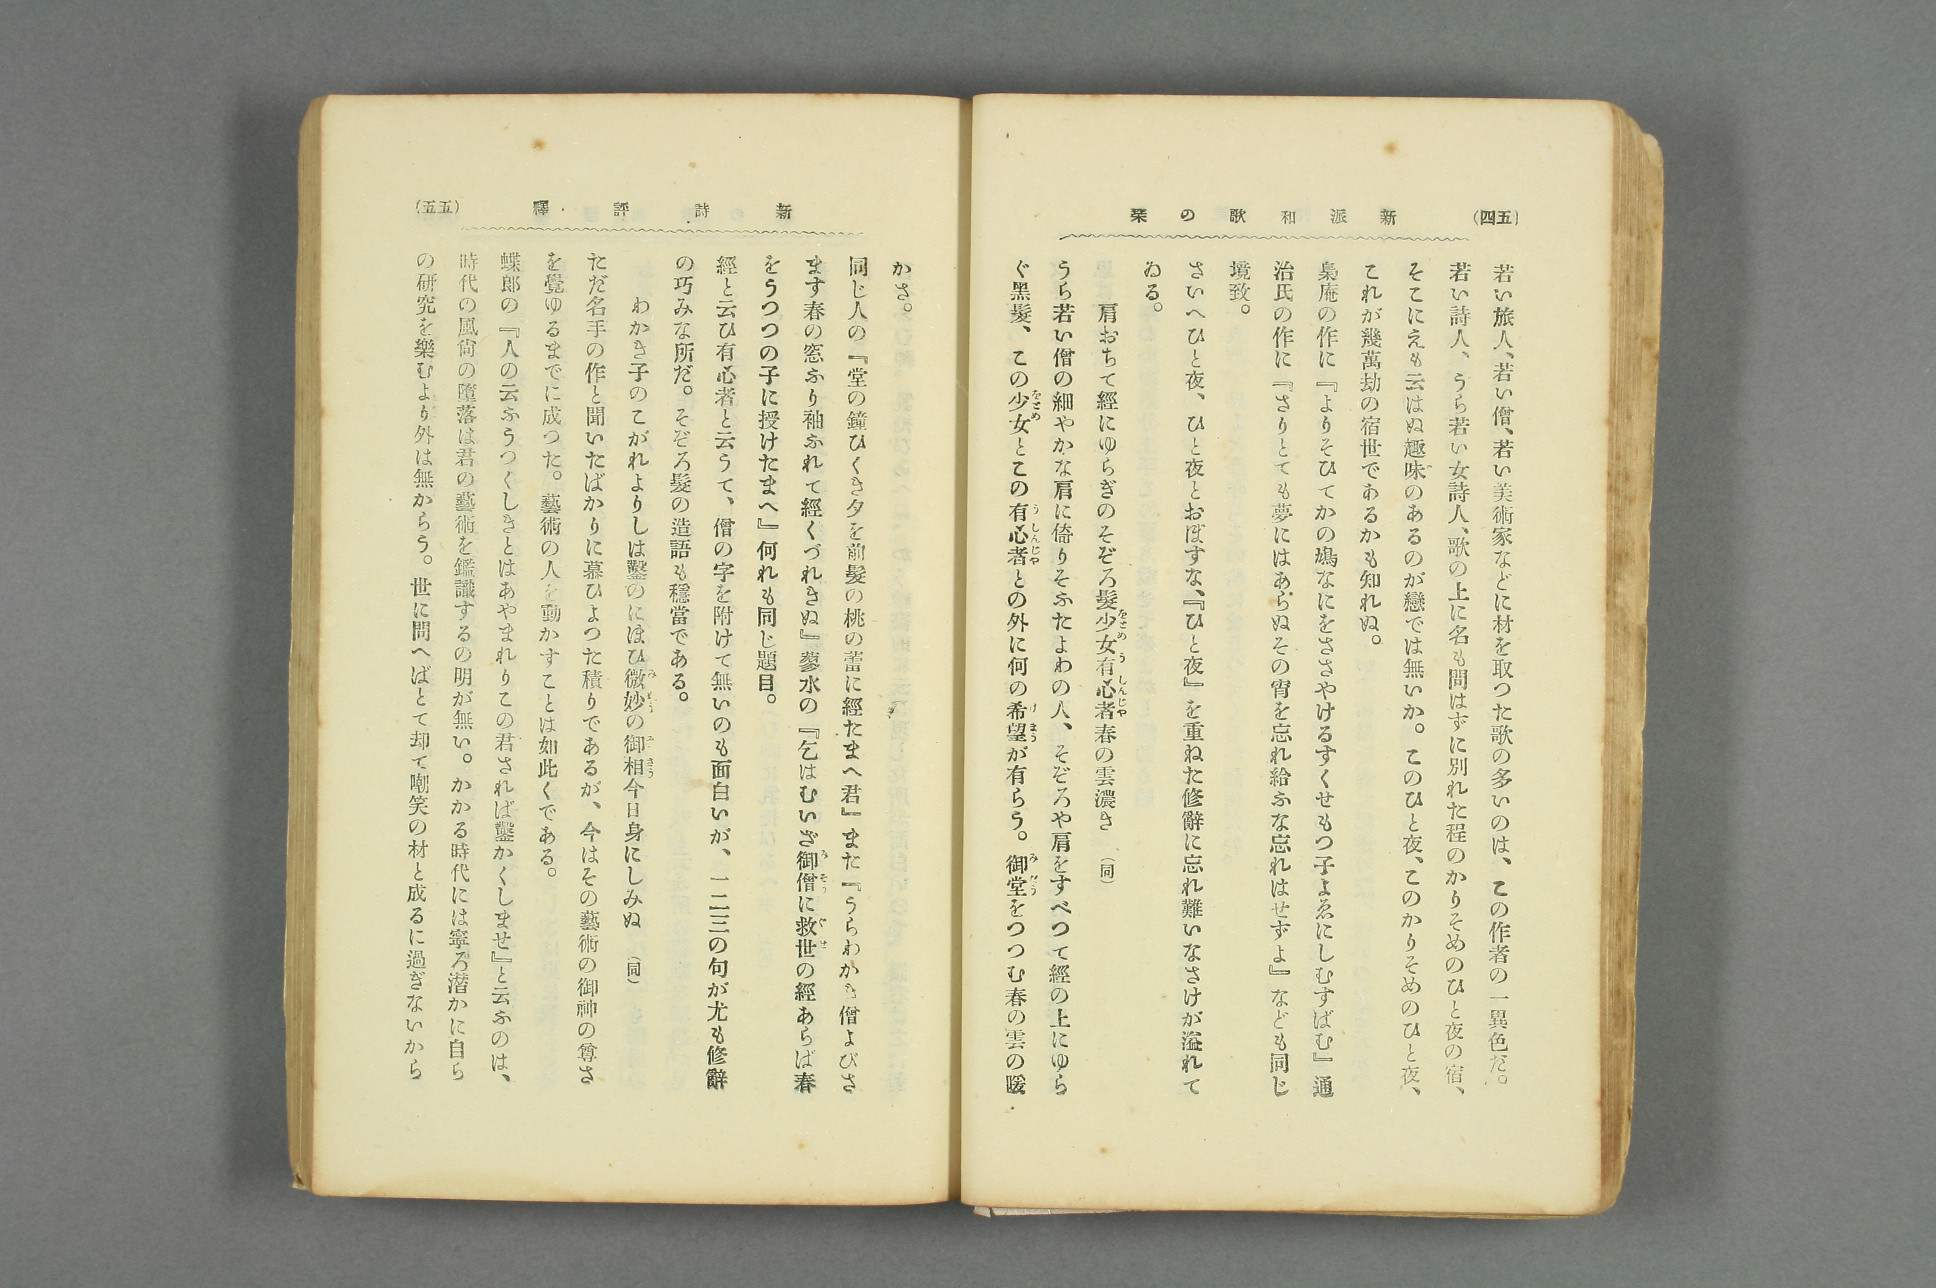 新派和歌の栞
(五四)
若い旅人、若い僧、若い美術家などに材を取つた歌の多いのは、この作者の一異色だ。
若い詩人、うら若い女詩人、歌の上に名も問はずに別れた程のかりそめのひと夜の宿、
そこにえも云はぬ趣味のあるのが戀では無いか。このひと夜、このかりそめのひと夜、
これが幾萬劫の宿世であるかも知れぬ。
梟庵の作に『よりそひてかの鳩なにをささやけるすくせもつ子よゑにしむすばむ』通
治氏の作に『さりとても夢にはあらぬその宵を忘れ給ふな忘れはせずよ』なども同じ
境致。
さいへひと夜、ひと夜とおぼすな、『ひと夜』を重ねた修辭に忘れ難いなさけが溢れて
ゐる。
肩おちて經にゆらぎのそぞろ髮少女有心者春の雲濃き (同)
うら若い僧の細やかな肩に倚りそふたよわの人、そぞろや肩をすべつて經の上にゆら
ぐ黑髮、この少女とこの有心者との外に何の希望が有らう。御堂をつつむ春の雲の暖
新詩評釋
(五五)
かさ。
同じ人の『堂の鐘ひくき夕を前髮の桃の蕾に經たまへ君』また『うらわかき僧よびさ
ます春の窓ふり袖ふれて經くづれきぬ』蓼水の『乞はむいざ御僧に救世の經あらば春
をうつつの子に授けたまへ』何れも同じ題目。
經と云ひ有心者と云うて、僧の字を附けて無いのも面白いが、一二三の句が尤も修辭
の巧みな所だ。そぞろ髮の造語も穩當である。
わかき子のこがれよりしは鑿のにほひ微妙の御相今日身にしみぬ (同)
ただ名手の作と聞いたばかりに慕ひよつた積りであるが、今はその藝術の御神の尊さ
を覺ゆるまでに成つた。藝術の人を動かすことは如此くである。
蝶郎の『人の云ふうつくしきとはあやまれりこの君されば鑿かくしませ』と云ふのは、
時代の風尙の墮落は君の藝術を鑑識するの明が無い。かかる時代には寧ろ潜かに自ら
の研究を樂むより外は無からう。世に問へばとて却て嘲笑の材と成るに過ぎないから